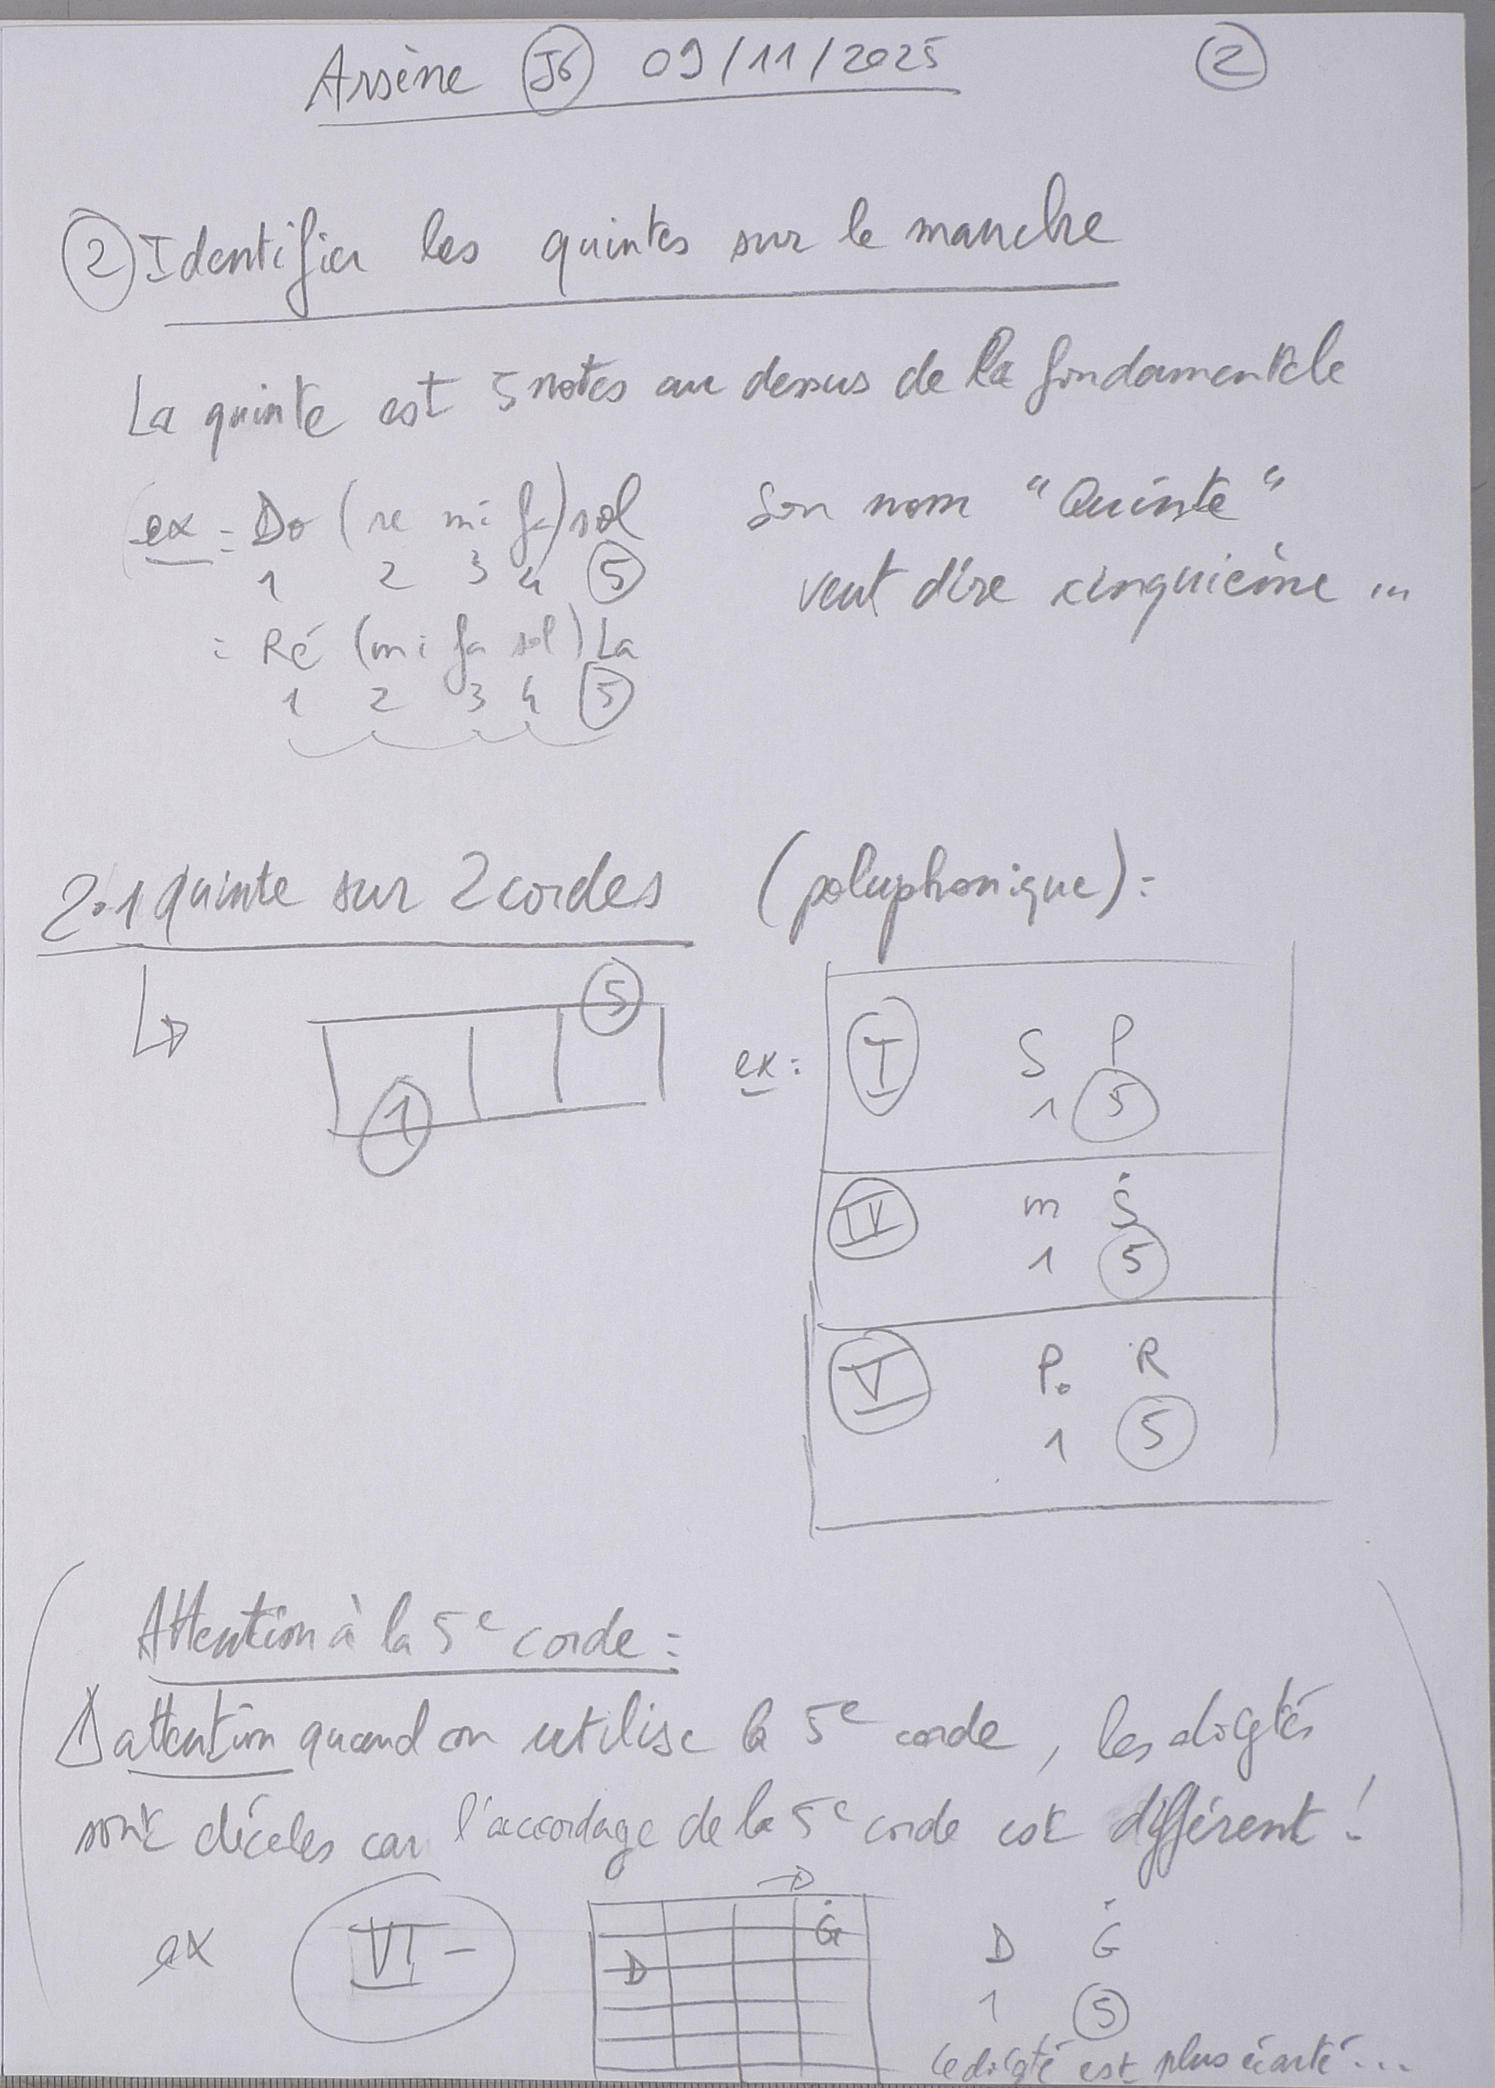 Arsène J6 09/11/2025 2
2 Identifier les quintes sur le manche
La quinte est 5 notes au dessus de la fondamentale
ex = Do (re mi fa) sol
1 2 3 4 5
Son nom "Quinte"
veut dire cinquième ...
= Ré (mi fa sol) La
1 2 3 4 5
2.1 quinte sur 2 cordes (polyphonique) =
5
1
ex :
I S P
1 5
IV m Ṡ
1 5
V P. R
1 5
Attention à la 5e corde =
attention quand on utilise la 5e corde, les doigtés
sont décalés car l'accordage de la 5e corde est différent !
ex VI-
Ġ
D
D Ġ
1 5
le doigté est plus écarté ...